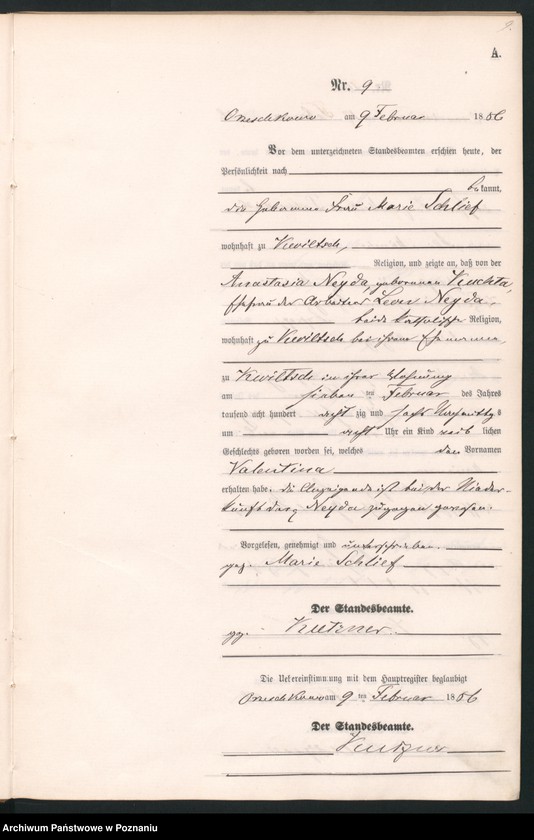 9.
A.
Nr. 9
Orzeschkowo am 9 Februar 1886
Vor dem unterzeichneten Standesbeamten erschien heute, der
Persönlichkeit nach
bekannt,
die Hebamme Frau Marie Schlief
wohnhaft zu Kwiltsch,
Religion, und zeigte an, daß von der
Anastasia Neyda, geborenen Kuchta,
Ehefrau des Arbeiters Neyda,
beide katholischer Religion,
wohnhaft zu Kwiltsch bei ihrem Ehemanne,
zu Kwiltsch in ihrer Wohnung
am sieben ten Februar des Jahres
tausend acht hundert acht zig und sechs Nachmittags
um acht Uhr ein Kind weib lichen
Geschlechts geboren worden sei, welches den Vornamen
Valentina
erhalten habe. die Anzeigende ist bei der Nieder-
kunft der Neyda zugegen gewesen.
Vorgelesen, genehmigt und unterschrieben.
gez. Marie Schlief
Der Standesbeamte.
gez. Kutzner
Die Uebereinstimmung mit dem Hauptregister beglaubigt
Orzeschkowo am 9 ten Februar 1886
Der Standesbeamte.
Kutzner
Archiwum Państwowe w Poznaniu